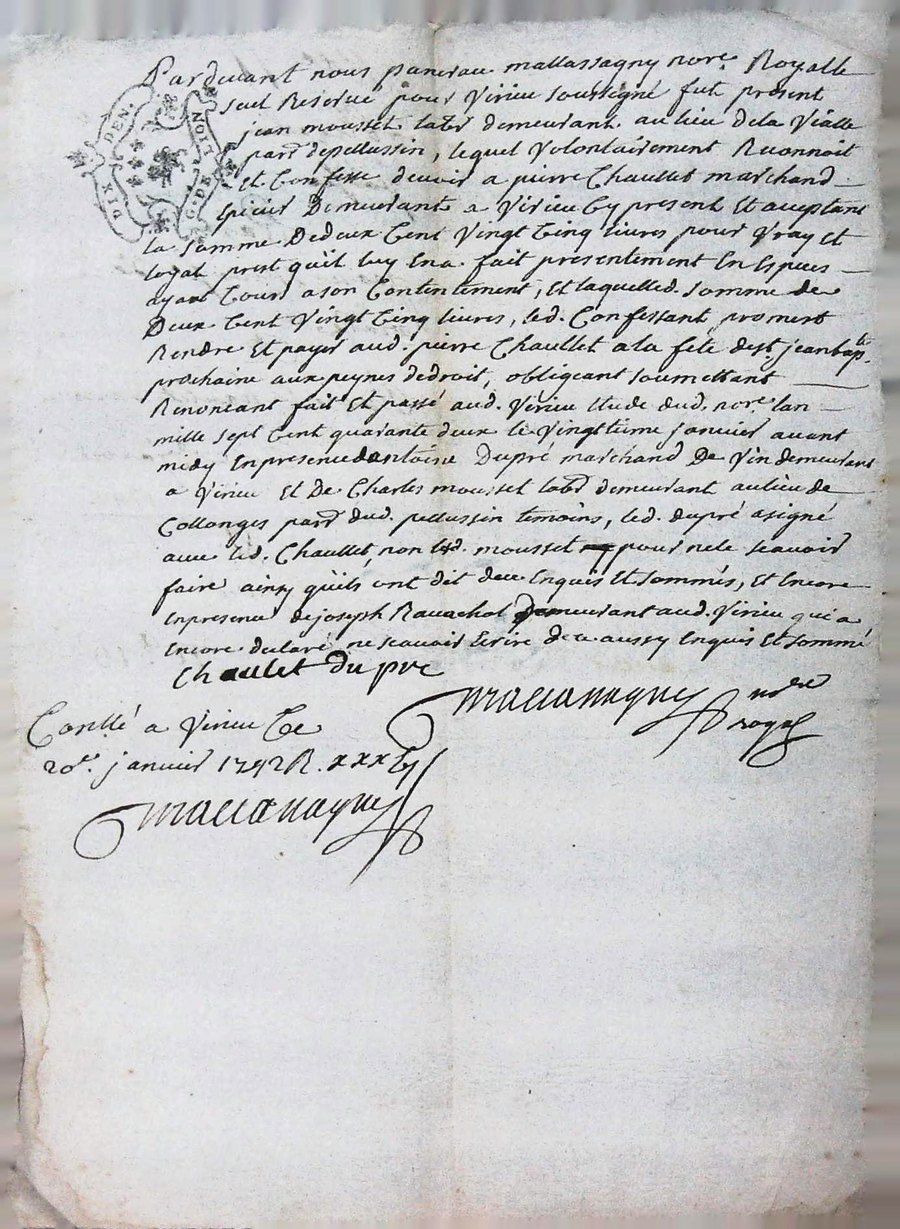 Pardevant nous pancrau mallassagny nore. Royalle
seul Reservé pour Virieu soussigné fut present
jean mousset labr demeurant au lieu dela Vialle
parr depellussin, lequel Volontairement Reconnoit
Et Confesse devoir a pierre Chaullet marchand
Epicier Demeurant a Virieu Cy present Et aceptant
la somme Dedeux Cent Vingt Cinq livres pour Vray Et
loyal prest quil luy Ena fait presentement En Especes
ayant Cour a son Contentement, Et laquelled. somme de
Deux Cent Vingt Cinq livres, led. Confessant promest
Rendre Et payer aud. pierre Chaullet ala fete dest. jeanbapte.
prochaine aux peynes dedroit, obligeant soumettant
Renonceant fait Et passé aud. Virieu Etude dud. nore. lan
mille sept Cent quarante deux le Vingtieme janvier avant
midy Enpresence dantoine Dupré marchand De Vin demeurant
a Virieu Et De Charles mousset labr demeurant au lieu de
Collonges parr dud. pellussin temoins, led. dupré a signé
avec led. Chaullet, non led. mousset pour ne le scavoir
faire ainsy quils ont dit de ce Enquis Et sommés, Et Encore
Enpresence dejoseph Ravachol Demeurant aud. Virieu qui a
Encore declaré ne scavoir Ecrire de ce aussy Enquis Et sommé
DIX DEN.
G. DE LION
Chaulet dupre
nore
royal
Conllé a Virieu Ce
20e. janvier 1742 R. xxx